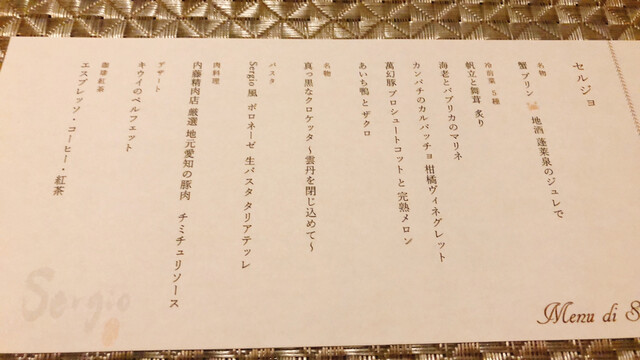 セルジョ
名物
蟹プリン 地酒 蓬莱泉のジュレで
冷前菜 5種
帆立と舞茸 炙り
海老とパプリカのマリネ
カンパチのカルパッチョ 柑橘ヴィネグレット
萬幻豚 プロシュートコット と 完熟メロン
あいち鴨 と ザクロ
名物
真っ黒なクロケッタ 〜雲丹を閉じ込めて〜
パスタ
Sergio風 ボロネーゼ 生パスタ タリアテッレ
肉料理
内藤精肉店 厳選 地元愛知の豚肉 チミチュリソース
デザート
キウイのペルフェット
珈琲紅茶
エスプレッソ・コーヒー・紅茶
Sergio
Menu di S